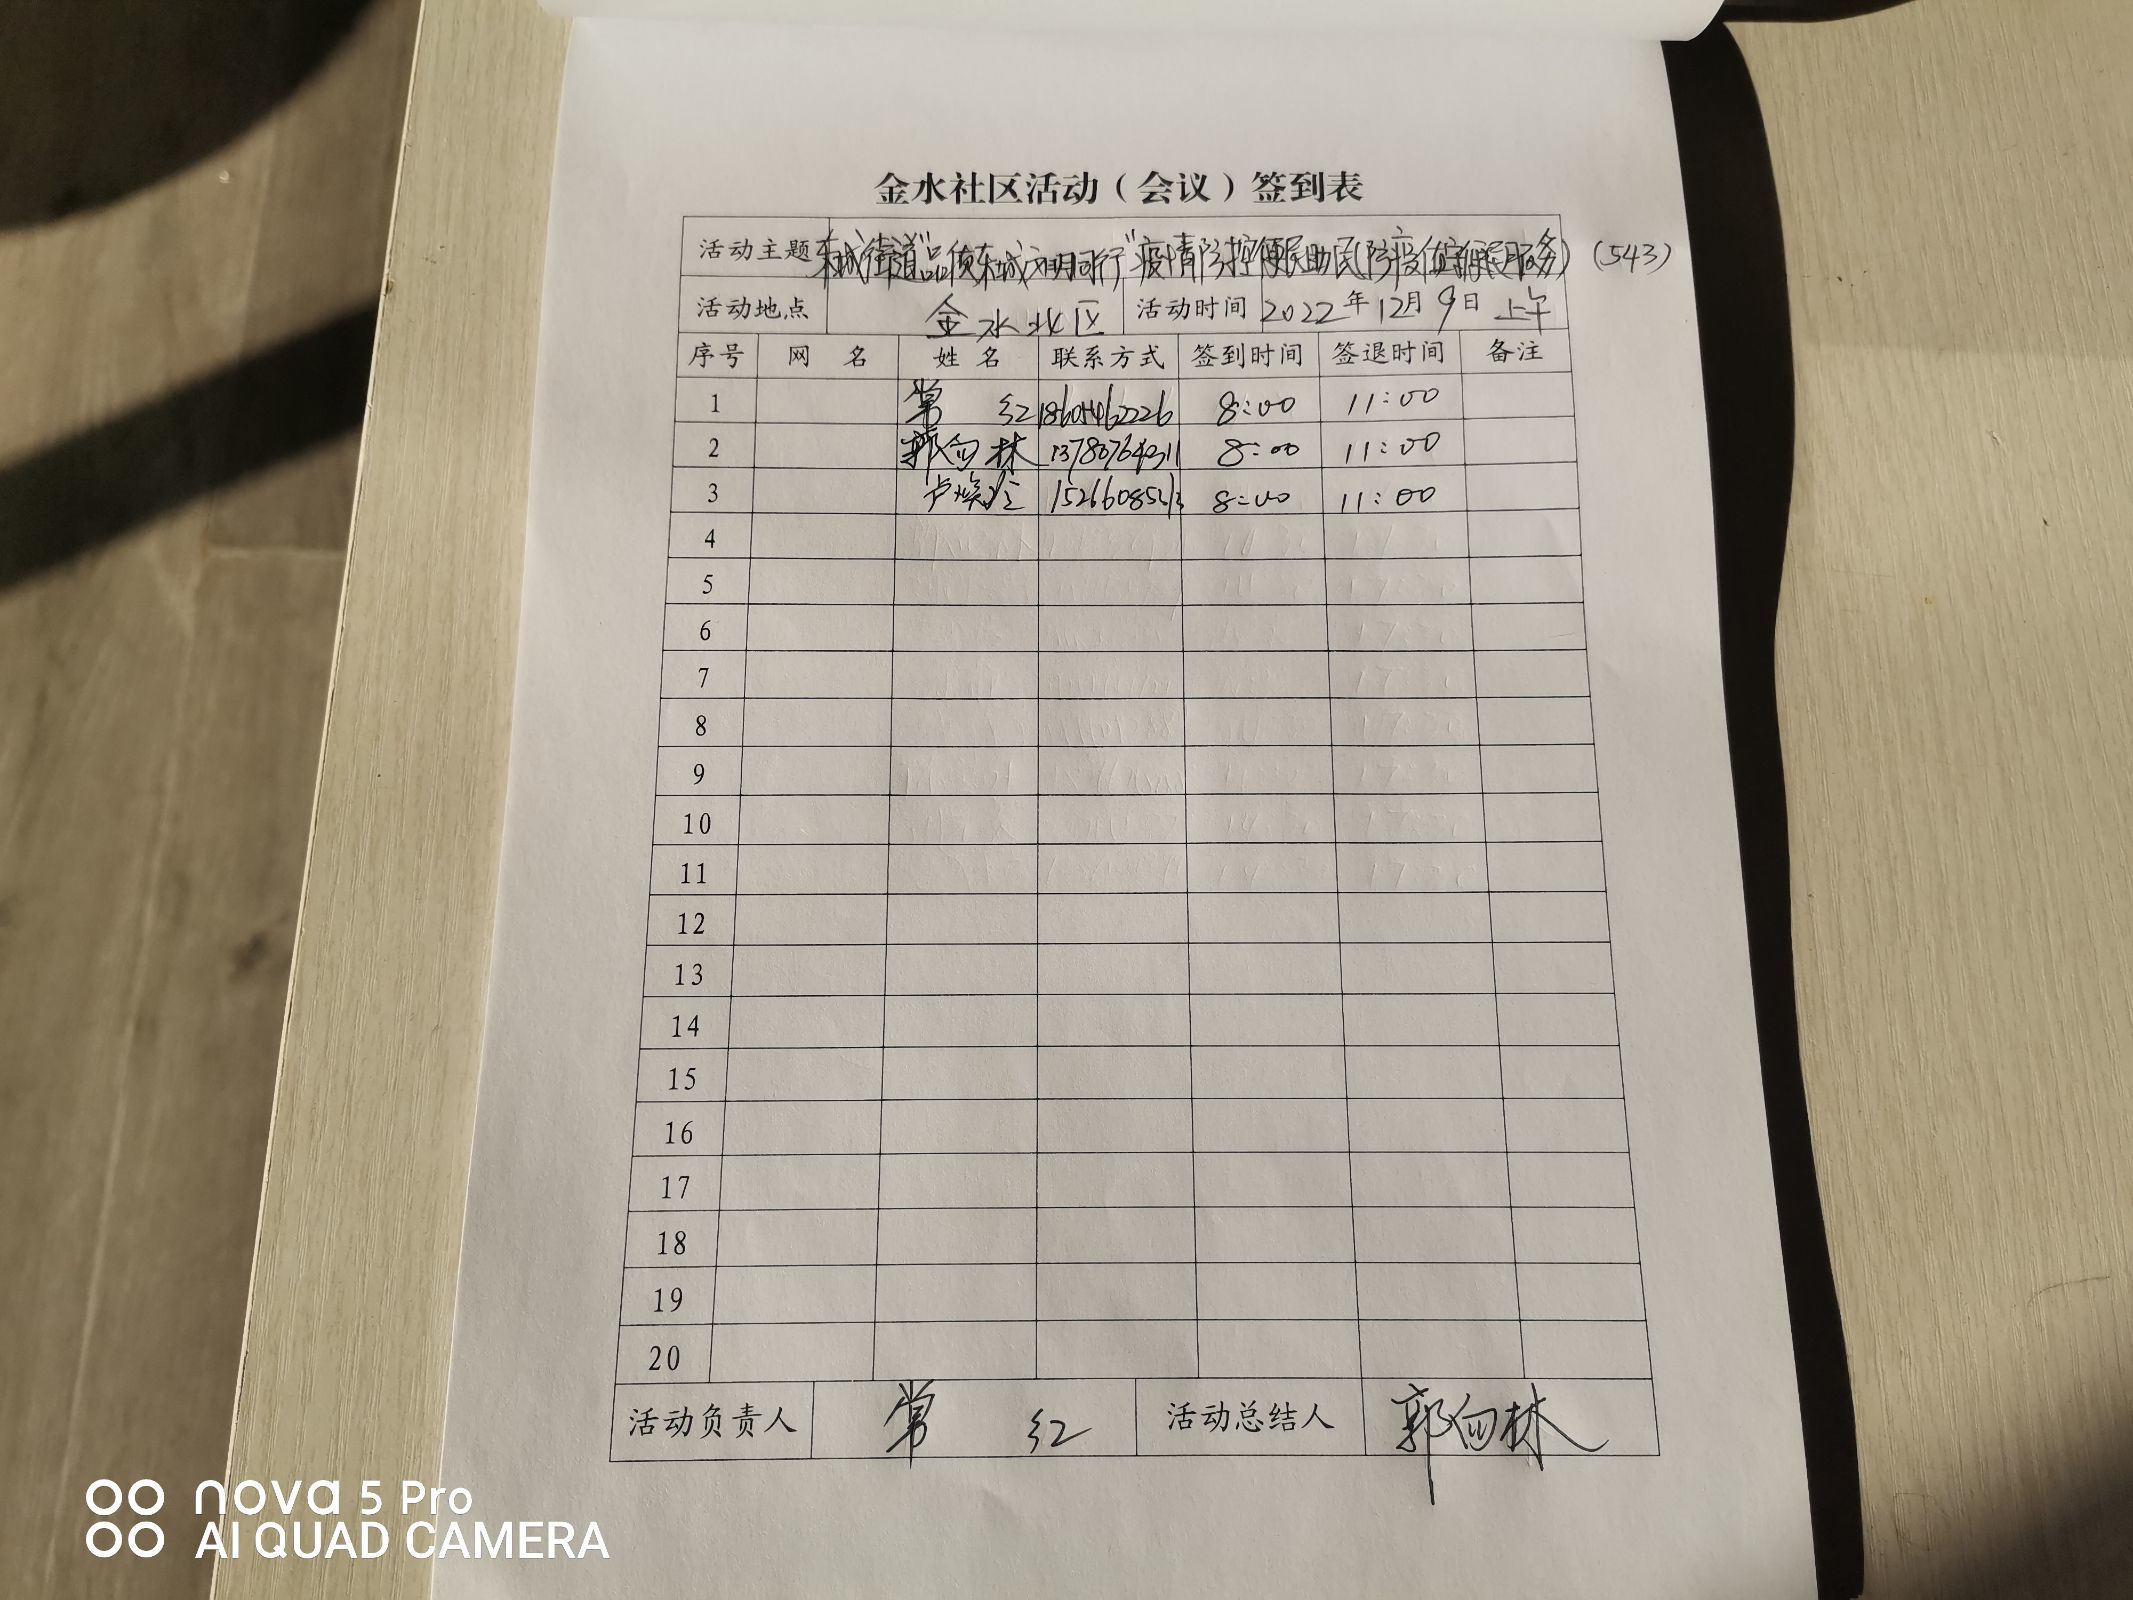 金水社区活动（会议）签到表
活动主题 东城街道"品质东城文明同行"疫情防控便民助民(防疫值守便民服务)(543)
活动地点 金水北区 活动时间 2022年12月9日 上午
序号 网 名 姓 名 联系方式 签到时间 签退时间 备注
1 常 红 8:00 11:00
2 郭向林 13780764311 8:00 11:00
3 8:00 11:00
4
5
6
7
8
9
10
11
12
13
14
15
16
17
18
19
20
活动负责人 常 红 活动总结人 郭向林
nova 5 Pro
AI QUAD CAMERA